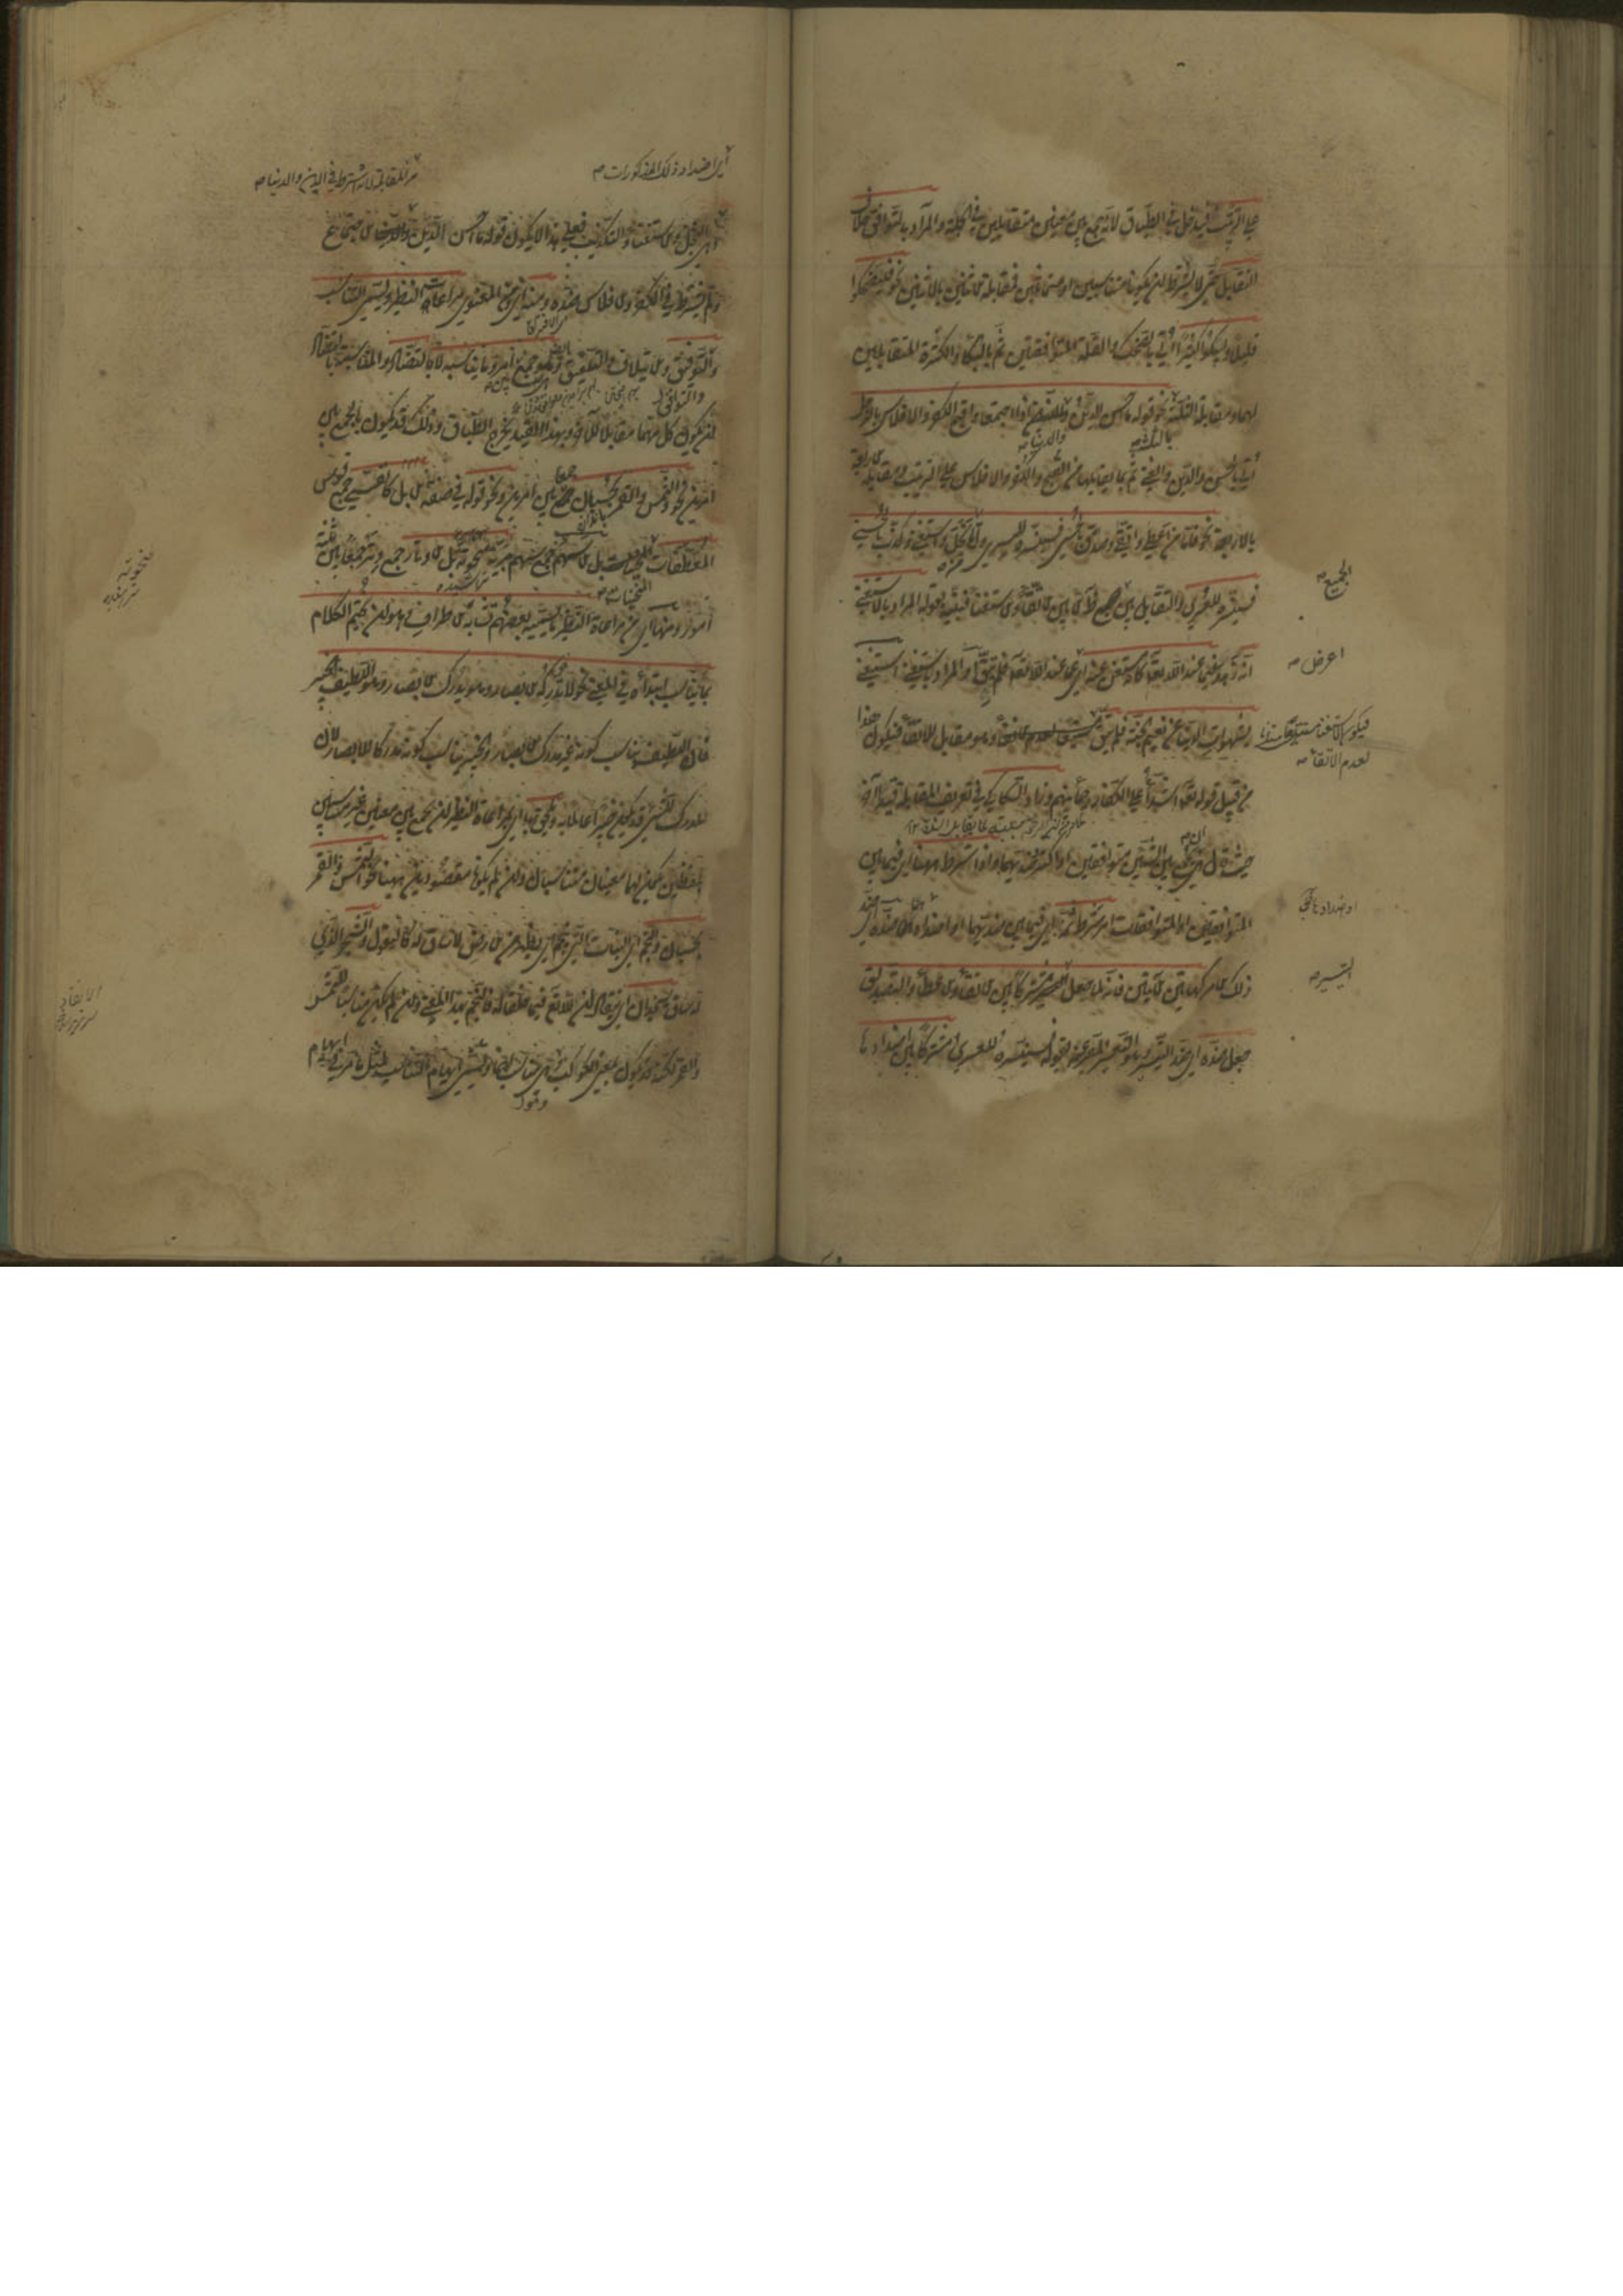 على الترتيب فيدخل في الطباق لانه جمع بين معنيين متقابلين في الجملة والمراد بالتوافق خلاف
التقابل حتى لا يشترط ان يكونا متناسبين او متماثلين فمقابلة الاثنين بالاثنين نحو فليضحكوا
قليلا وليبكوا كثيرا اتى بالضحك والقلة المتوافقين ثم بالبكاء والكثرة المتقابلين
لهما ومقابلة الثلثة نحو قوله ما احسن الدين والدنيا اذا اجتمعا واقبح الكفر والافلاس بالرجل
اتى بالحسن والدين والغنى ثم بما يقابلها من القبح والكفر والافلاس على الترتيب ومقابلة الاربعة
بالاربعة نحو فاما من اعطى واتقى وصدق بالحسنى فسنيسره لليسرى واما من بخل واستغنى وكذب بالحسنى
فسنيسره للعسرى والتقابل بين الجميع ظاهر الا بين الاتقاء والاستغناء فبينه بقوله المراد باستغنى
انه زهد فيما عند الله تعالى كانه استغنى عنه اي عما عند الله تعالى فلم يتق او المراد باستغنى استغنى
بشهوات الدنيا عن نعيم الجنة فلم يتق وهو مقابل للاتقاء فيكون هذا
من قبيل قوله تعالى اشداء على الكفار رحماء بينهم وزاد السكاكي في تعريف المقابلة قيدا آخر
حيث قال هي ان تجمع بين شيئين متوافقين او اكثر وضديهما واذا شرط ههنا اي فيما بين
المتوافقين او المتوافقات امر شرط ثمه اي فيما بين ضديهما او اضدادها ضده اي ضد
ذلك الامر كهاتين الآيتين فانه لما جعل التيسير مشتركا بين الاعطاء والاتقاء والتصديق
جعل ضده اي ضد التيسير وهو التعسير المعبر عنه بقوله فسنيسره للعسرى مشتركا بين اضدادها
الجميع
اعرض
فيكون الاستغناء مستتبعا
لعدم الاتقاء
او اضدادها
التيسير
اي اضداد ذلك المذكورات
من المقابلة لانه اشترط في الدين والدنيا
وهي البخل والاستغناء والتكذيب فعلى هذا لا يكون قوله ما احسن الدين والدنيا الاجتماع
ولم يشترط في الكفر والافلاس ضده ومنه اي من المعنوي مراعاة النظير ويسمى التناسب
والتوفيق والائتلاف والتلفيق وهو جمع امر وما يناسبه لا بالتضاد والمناسبة بالتضاد
ان يكون كل منهما مقابلا للآخر وبهذا القيد يخرج الطباق وذلك قد يكون بالجمع بين
امرين نحو والشمس والقمر بحسبان جمع بين امرين ونحو قوله في صفة الابل كالقسي جمع قوس
المعطفات بل الاسهم جمع سهم مبرية بل الاوتار جمع وتر جمع بين ثلثة
امور ومنها اي من مراعاة النظير ما يسميه بعضهم تشابه الاطراف وهو ان يختم الكلام
بما يناسب ابتداءه في المعنى نحو لا تدركه الابصار وهو يدرك الابصار وهو اللطيف الخبير
فان اللطيف يناسب كونه غير مدرك بالابصار والخبير يناسب كونه مدركا للابصار لان
المدرك للشيء قد يكون خبيرا عالما به ويلحق بها اي بمراعاة النظير ان تجمع بين معنيين غير متناسبين
بلفظين يكون لهما معنيان متناسبان وان لم يكونا مقصودين ههنا نحو الشمس والقمر
بحسبان والنجم اي النبات الذي ينجم اي يظهر من الارض لا ساق له كالبقول والشجر الذي
له ساق يسجدان اي ينقادان لله تعالى فيما خلقا له فالنجم بهذا المعنى وان لم يكن مناسبا للشمس
والقمر لكنه قد يكون بمعنى الكوكب وهو مناسب لهما ويسمى ايهام التناسب لمثل ما مر في ايهام